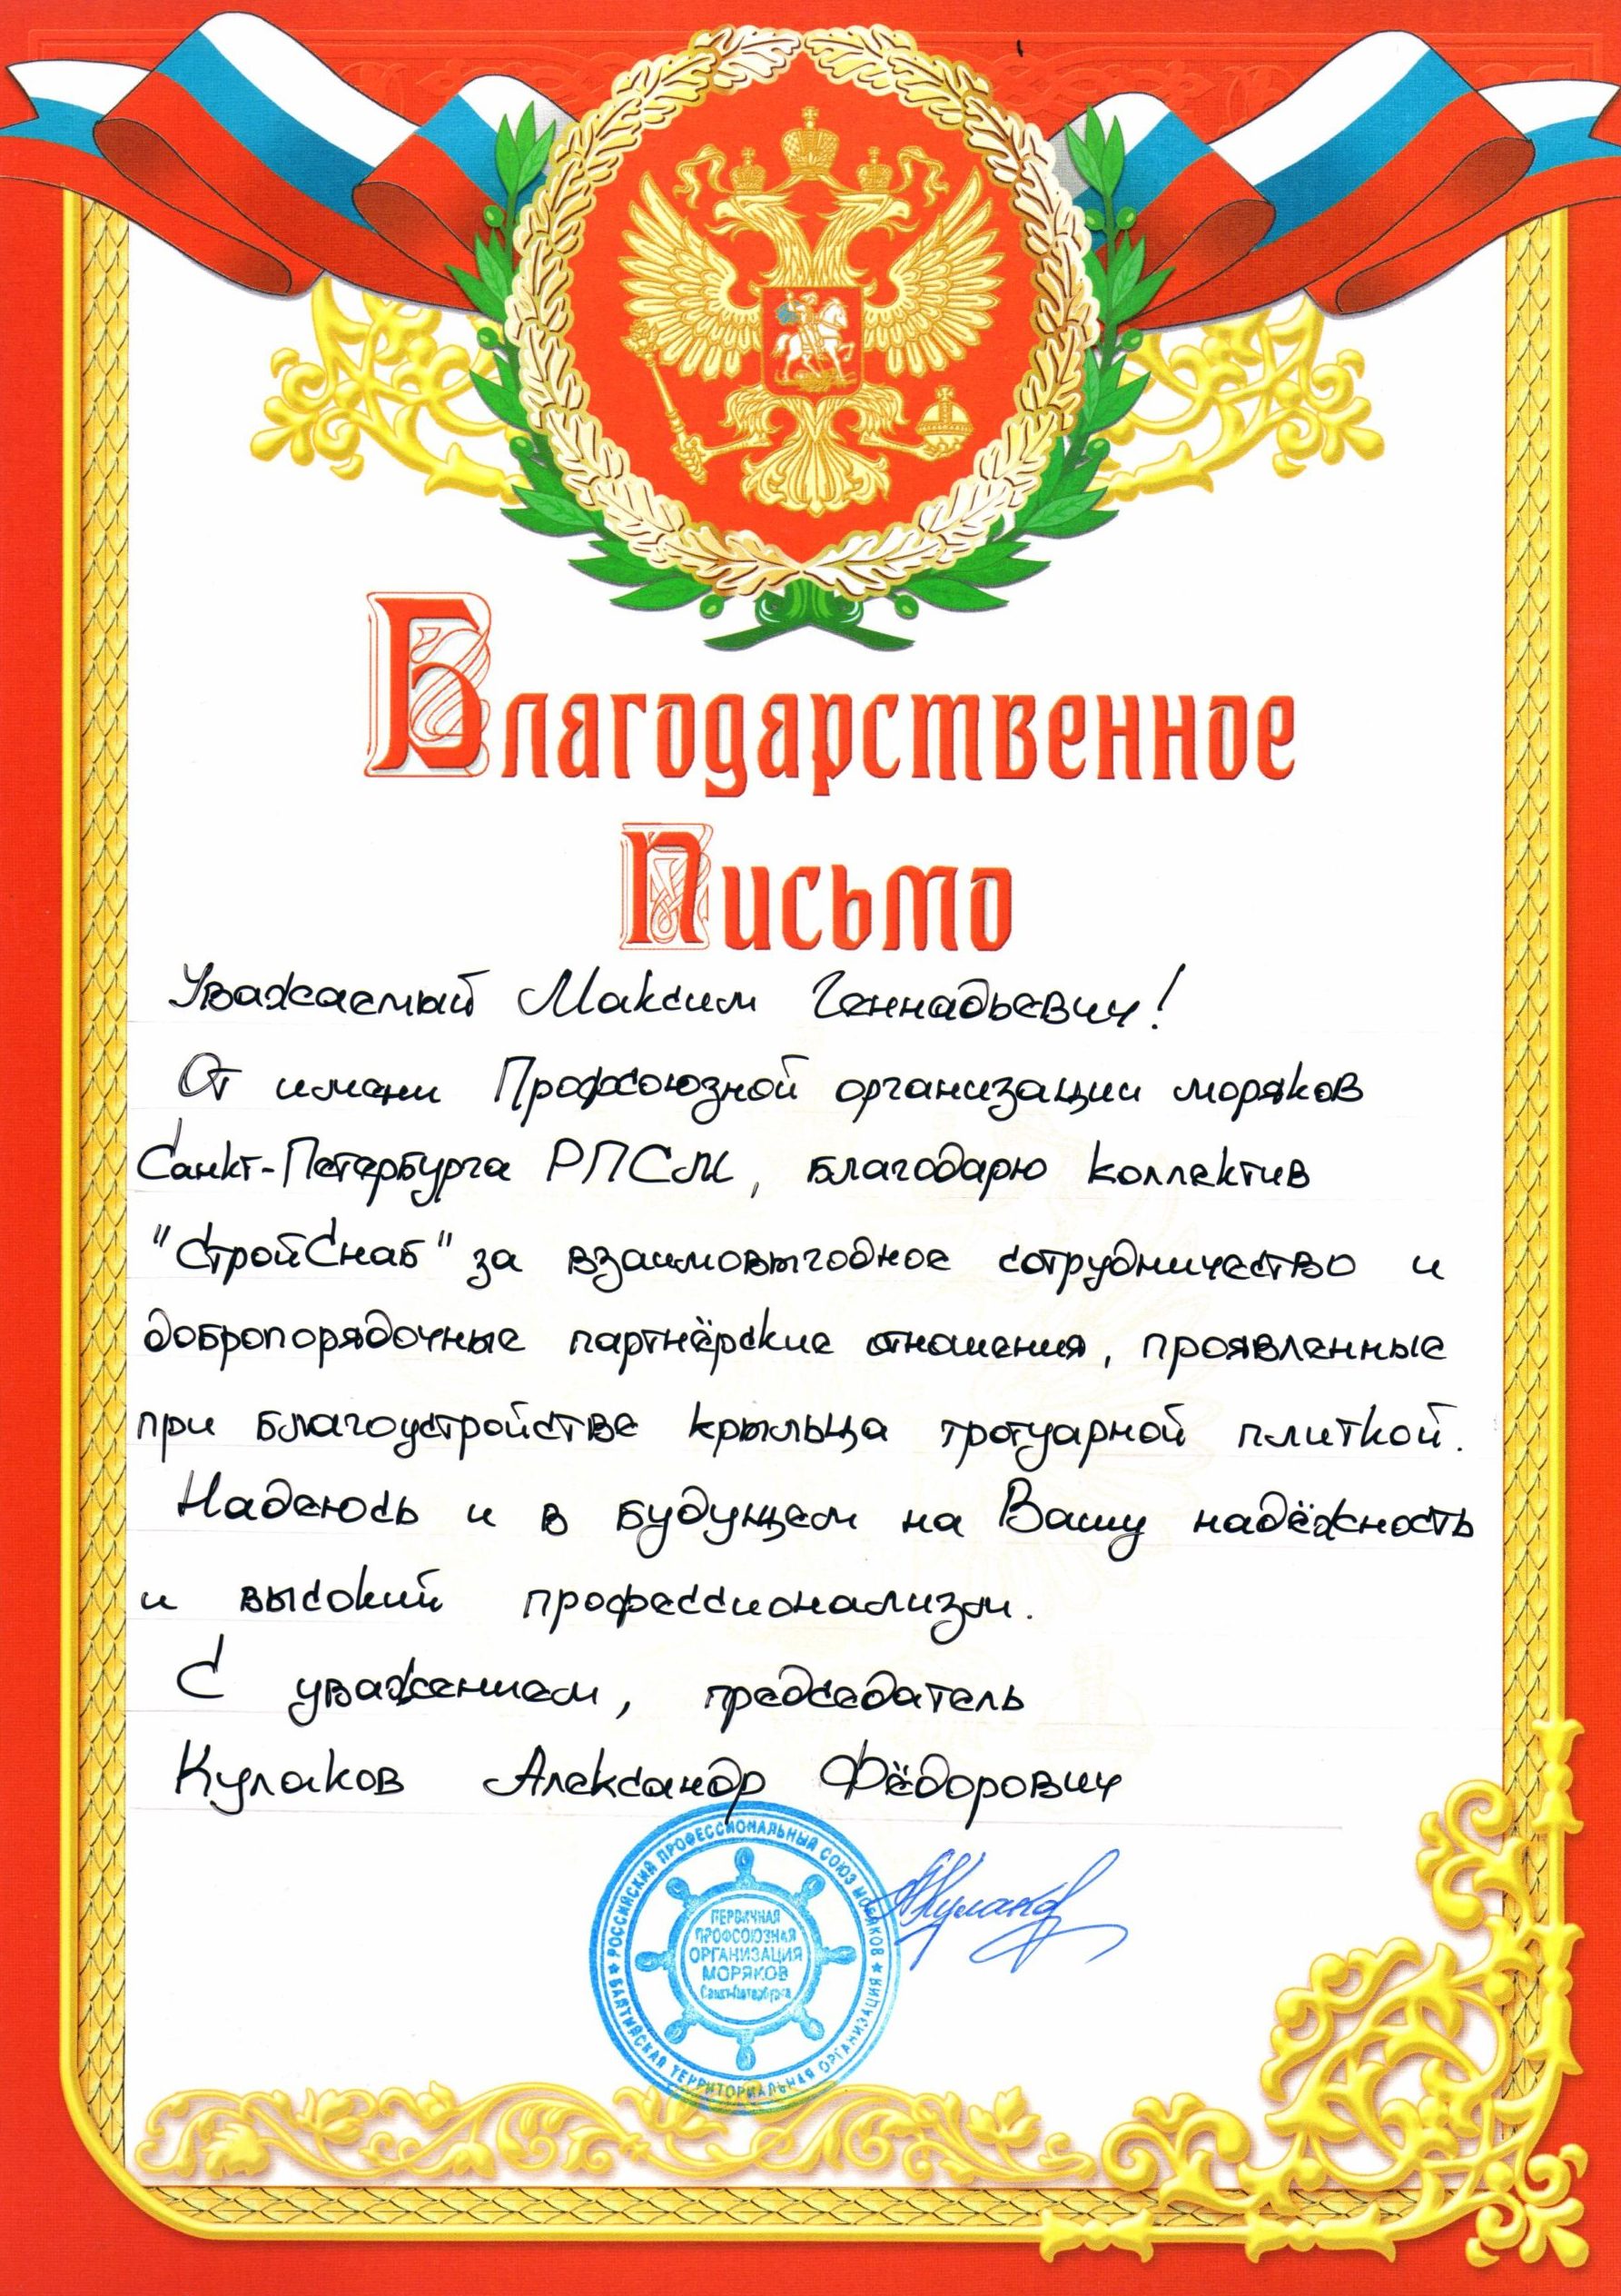 Благодарственное
Письмо
Уважаемый Максим Геннадьевич!
От имени Профсоюзной организации моряков
Санкт-Петербурга РПСМ, благодарю коллектив
"СтройСнаб" за взаимовыгодное сотрудничество и
добропорядочные партнёрские отношения, проявленные
при благоустройстве крыльца тротуарной плиткой.
Надеюсь и в будущем на Вашу надёжность
и высокий профессионализм.
С уважением, председатель
Кулаков Александр Фёдорович
РОССИЙСКИЙ ПРОФЕССИОНАЛЬНЫЙ СОЮЗ МОРЯКОВ
БАЛТИЙСКАЯ ТЕРРИТОРИАЛЬНАЯ ОРГАНИЗАЦИЯ
ПЕРВИЧНАЯ
ПРОФСОЮЗНАЯ
ОРГАНИЗАЦИЯ
МОРЯКОВ
Санкт-Петербурга
АКулаков